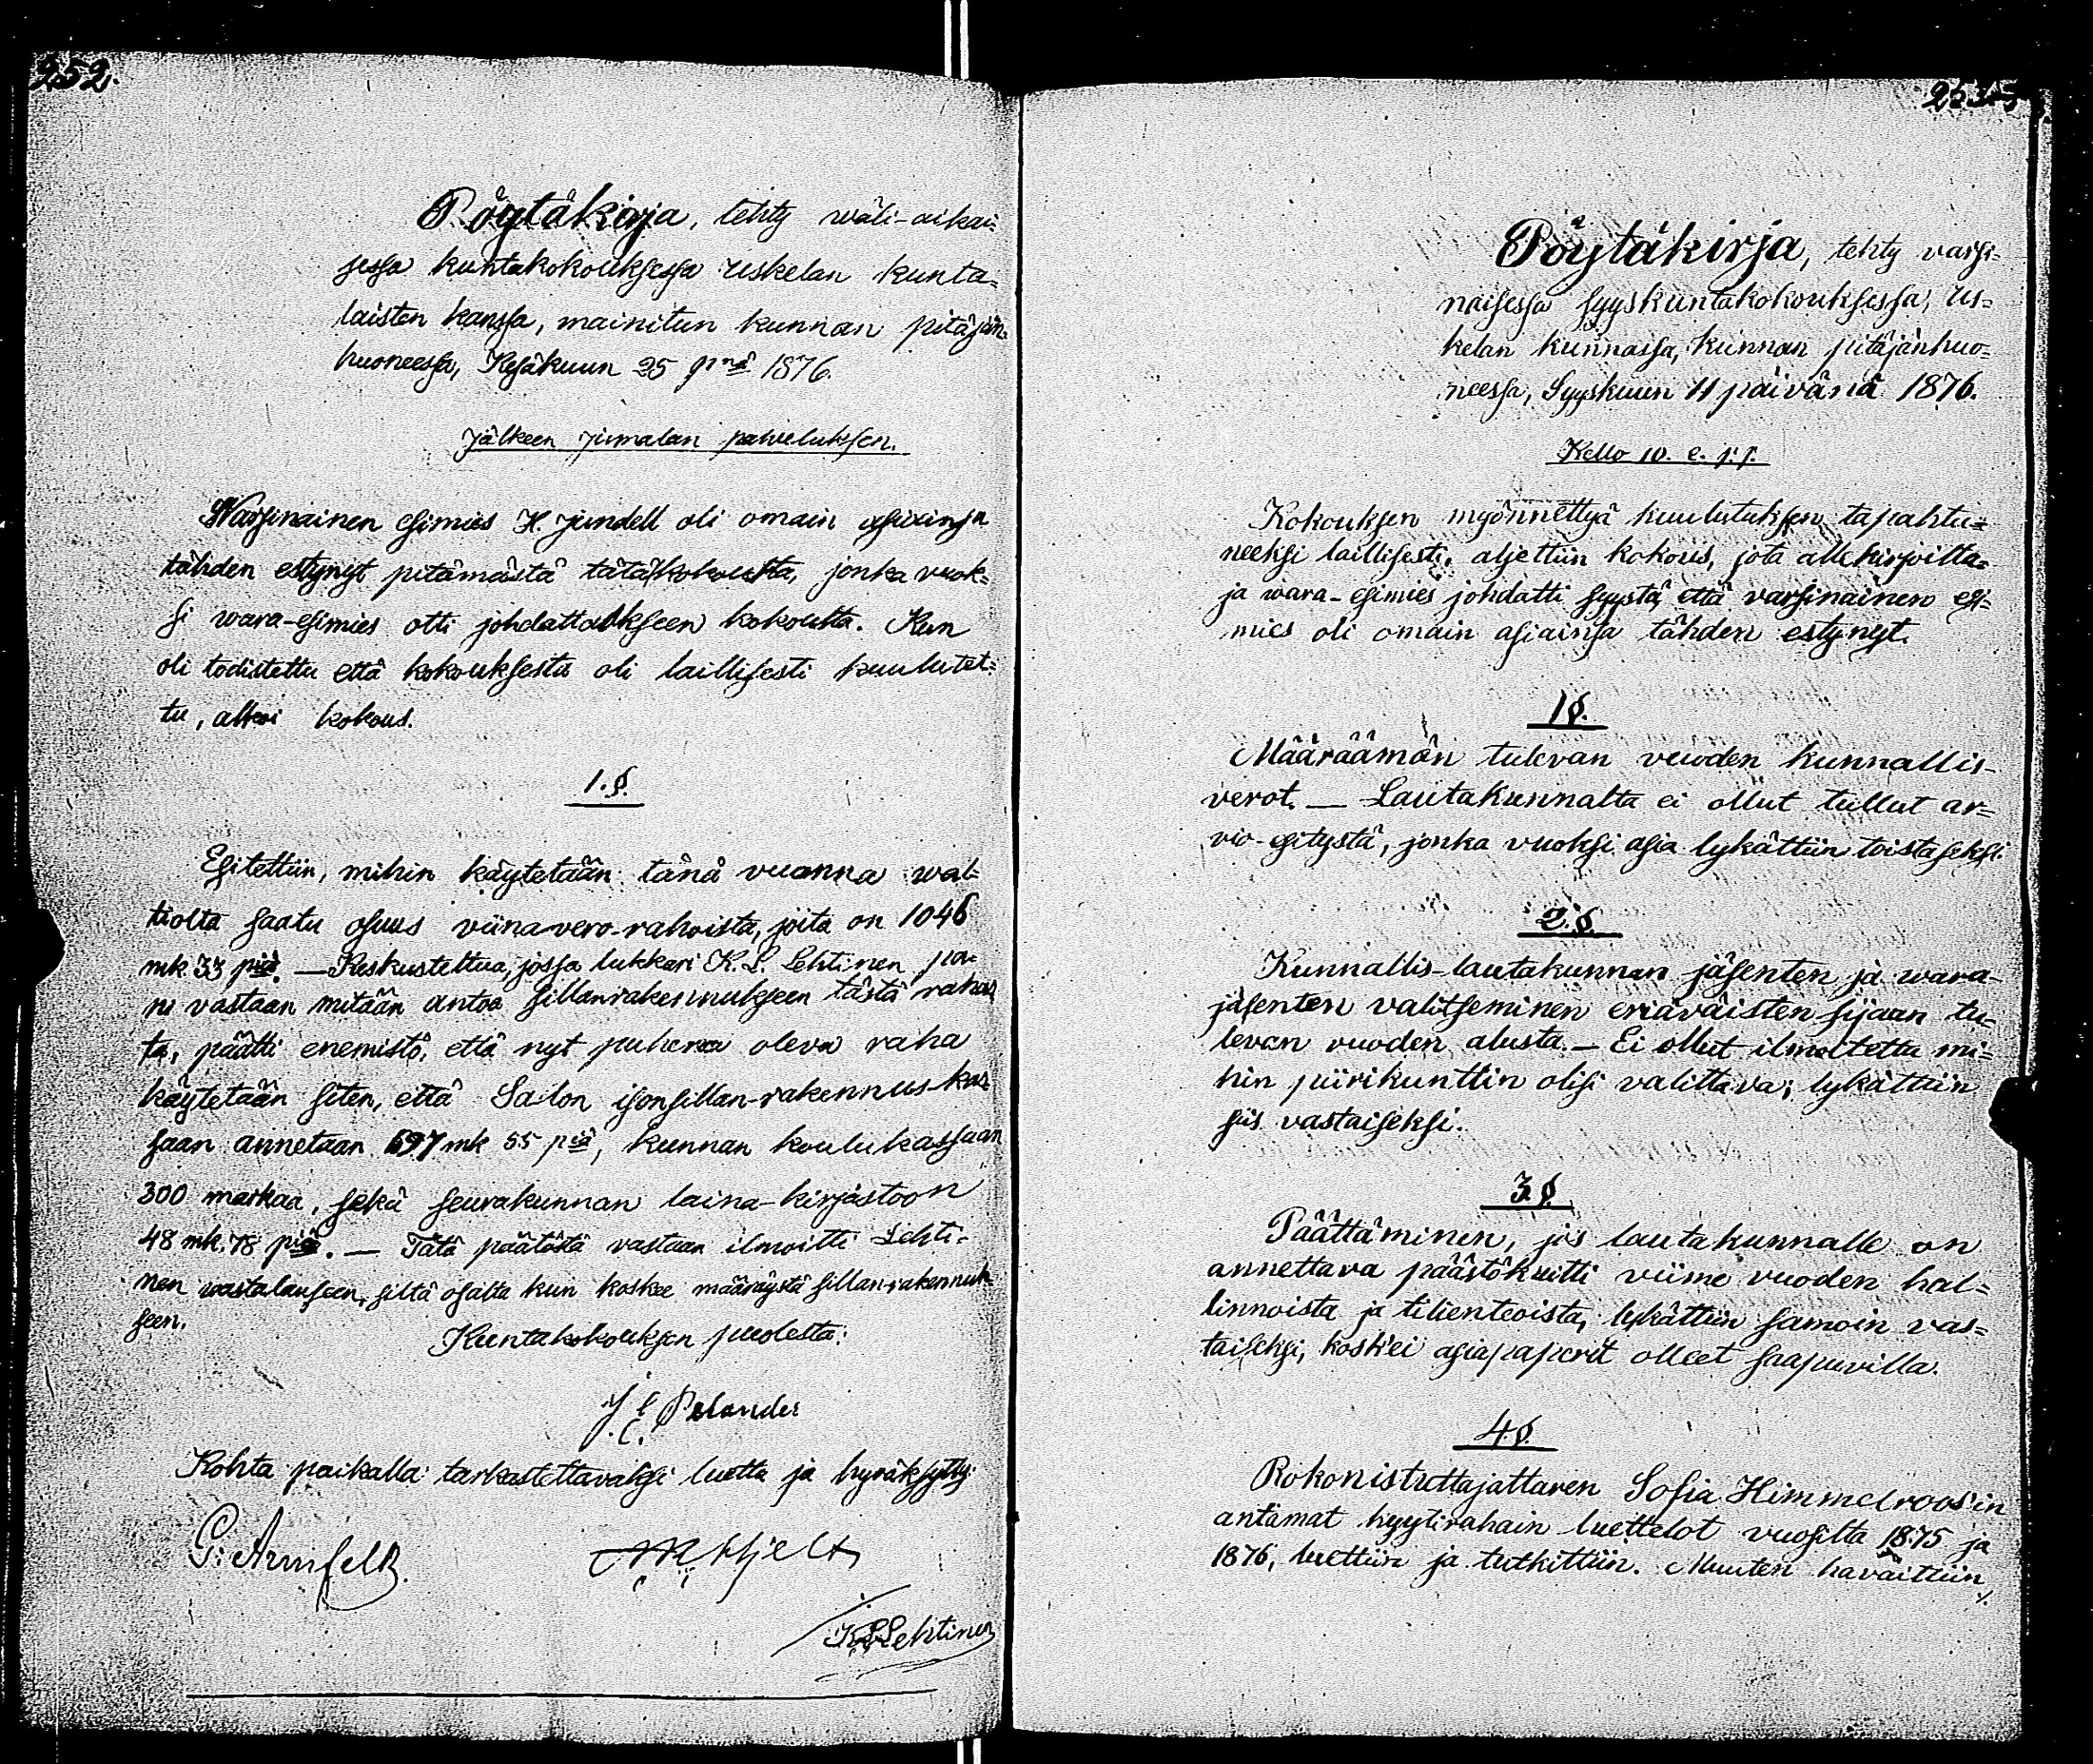 252.
Pöytäkirja, tehty wäli-aikai-
sessa kuntakokouksessa Uskelan kunta-
laisten kanssa, mainitun kunnan pitäjän-
huoneessa, Kesäkuun 25 pnä 1876.
Jälkeen jumalan palveluksen.
Warsinainen esimies H. Jundell oli omain asiainsa
tähden estynyt pitämästä tätä kokousta, jonka vuok-
si wara-esimies otti johdattaaksseen kokousta. Kun
oli todistettu että kokouksesta oli laillisesti kuulutet-
tu, alkoi kokous.
1.§.
Esitettiin, mihin käytetään tänä vuonna wal-
tiolta saatu osuus viinavero-rahoista, joita on 1046
mk 33 piä. — Keskusteltua, jossa lukkari K. L. Lehtinen pa-
ni vastaan mitään antoa sillanrakennukseen tästä rahas
ta, päätti enemistö, että nyt puheena oleva raha
käytetään siten, että Salon isonsillan-rakennus-kas
saan annetaan 697 mk 55 piä, kunnan koulukassaan
300 markaa, sekä seurakunnan laina-kirjastoon
48 mk. 78 piä. — Tätä päätöstä vastaan ilmoitti Lehti-
nen vastalauseen, siltä osalta kun koskee määräystä sillan-rakennuk-
seen.
Kuntakokouksen puolesta:
J. E. Pelander
Kohta paikalla tarkastettavaksi luettu ja hyväksytty:
G: Armfelt.
Hjelt
K L Lehtinen
Pöytäkirja, tehty varsi-
naisessa syyskuntakokouksessa, Us-
kelan kunnassa, kunnan pitäjänhuo-
neessa, Syyskuun 11 päivänä 1876.
Kello 10. e. p. p.
Kokouksen myönnettyä kuulutuksen tapahtu-
neeksi laillisesti, aljettiin kokous, jota allekirjoitta-
ja wara-esimies johdatti syystä, että varsinainen esi-
mies oli omain asiainsa tähden estynyt.
1§.
Määräämän tulevan vuoden kunnallis-
verot. — Lautakunnalta ei ollut tullut ar-
vio-esitystä, jonka vuoksi asia lykättiin toistaiseksi.
2.§.
Kunnallis-lautakunnan jäsenten ja wara-
jäsenten valitseminen eriäväisten sijaan tu-
levan vuoden alusta. — Ei ollut ilmoitettu mi-
hin piirikuntiin olisi valittava; lykättiin
siis vastaiseksi.
3.§.
Päättäminen, jos lautakunnalle on
annettava päästökuitti viime vuoden hal-
linnoista ja tilienteoista, lykättiin samoin vas-
taiseksi, kosk'ei asiapaperit olleet saapuvilla.
4.§.
Rokonistuttajattaren Sofia Himmelroos'in
antamat kyytirahain luettelot vuosilta 1875 ja
1876, luettiin ja tutkittiin. Muuten havaittiin